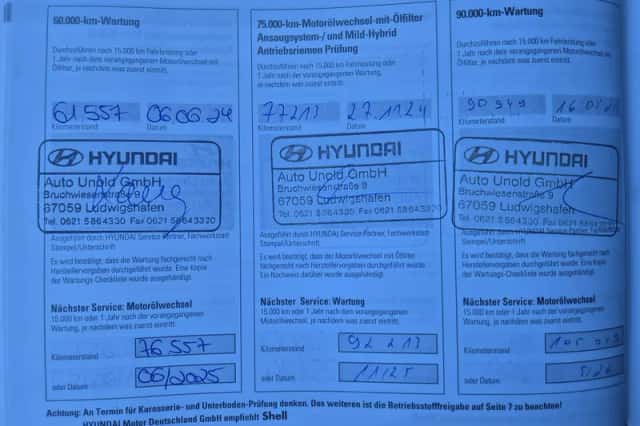 60.000-km-Wartung
Durchzuführen nach 15.000 km Fahrleistung oder
1 Jahr nach dem vorangegangenen Motorölwechsel mit
Ölfilter, je nachdem was zuerst eintritt.
61557 06.06.24
Kilometerstand Datum
HYUNDAI
Auto Unold GmbH
Bruchwiesenstraße 9
67059 Ludwigshafen
Tel. 0621 5864330 Fax 0621 58643320
Ausgeführt durch HYUNDAI Service-Partner, Fachwerkstatt
Stempel/Unterschrift
Es wird bestätigt, dass die Wartung fachgerecht nach
Herstellervorgaben durchgeführt wurde. Eine Kopie
der Wartungs-Checkliste wurde ausgehändigt.
Nächster Service: Motorölwechsel
15.000 km oder 1 Jahr nach der vorangegangenen
Wartung, je nachdem was zuerst eintritt.
Kilometerstand 76557
oder Datum 06/2025
75.000-km-Motorölwechsel-mit-Ölfilter
Ansaugsystem-/ und Mild-Hybrid
Antriebsriemen Prüfung
Durchzuführen nach 15.000 km Fahrleistung oder
1 Jahr nach der vorangegangenen Wartung,
je nachdem was zuerst eintritt.
77213 27.11.24
Kilometerstand Datum
HYUNDAI
Auto Unold GmbH
Bruchwiesenstraße 9
67059 Ludwigshafen
Tel. 0621 5864330 Fax 0621 58643320
Ausgeführt durch HYUNDAI Service-Partner, Fachwerkstatt
Stempel/Unterschrift
Es wird bestätigt, dass der Motorölwechsel mit Ölfilter
fachgerecht nach Herstellervorgaben durchgeführt wurde.
Ein Nachweis darüber wurde ausgehändigt.
Nächster Service: Wartung
15.000 km oder 1 Jahr nach dem vorangegangenen
Motorölwechsel, je nachdem was zuerst eintritt.
Kilometerstand 92213
oder Datum 11/25
90.000-km-Wartung
Durchzuführen nach 15.000 km Fahrleistung oder
1 Jahr nach dem vorangegangenen Motorölwechsel mit
Ölfilter, je nachdem was zuerst eintritt.
90949
Kilometerstand Datum
HYUNDAI
Auto Unold GmbH
Bruchwiesenstraße 9
67059 Ludwigshafen
Tel. 0621 5864330 Fax 0621
Ausgeführt durch HYUNDAI Service-Partner, Fachwerkstatt
Stempel/Unterschrift
Es wird bestätigt, dass die Wartung fachgerecht nach
Herstellervorgaben durchgeführt wurde. Eine Kopie
der Wartungs-Checkliste wurde ausgehändigt.
Nächster Service: Motorölwechsel
15.000 km oder 1 Jahr nach der vorangegangenen
Wartung, je nachdem was zuerst eintritt.
Kilometerstand
oder Datum
Achtung: An Termin für Karosserie- und Unterboden-Prüfung denken. Des weiteren ist die Betriebsstofffreigabe auf Seite 7 zu beachten!
HYUNDAI Motor Deutschland GmbH empfiehlt Shell